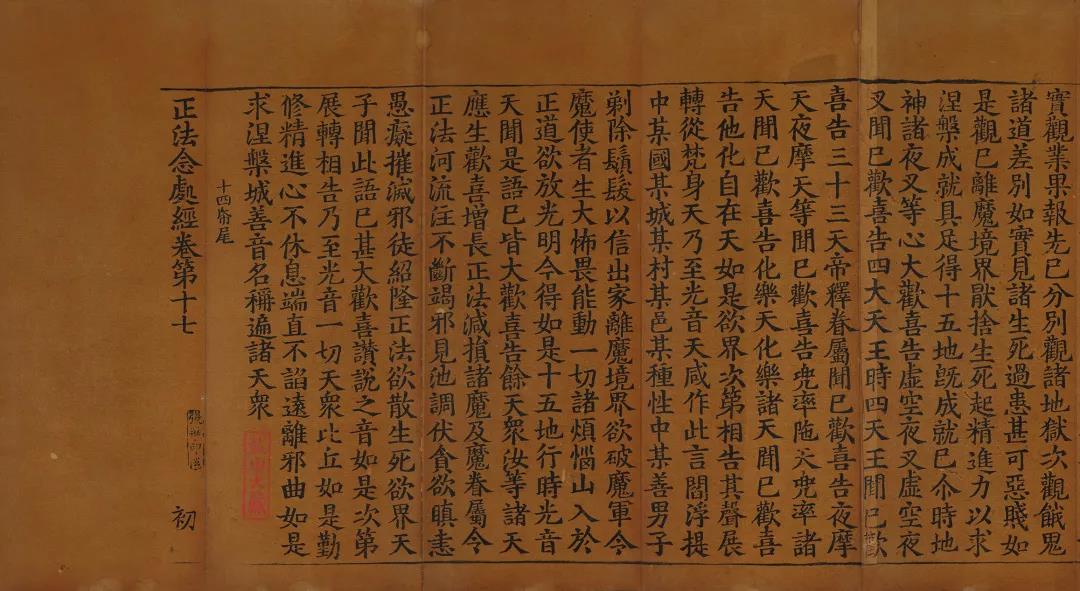 實觀業果報先已分別觀諸地獄次觀餓鬼
諸道差別如實見諸生死過患甚可惡賤如
是觀已離魔境界猒捨生死起精進力以求
涅槃成就具足得十五地旣成就已尒時地
神諸夜叉等心大歡喜告虛空夜叉虛空夜
叉聞已歡喜告四大天王時四天王聞已歡
喜告三十三天帝釋眷屬聞已歡喜告夜摩
天夜摩天等聞已歡喜告兜率陁天兜率諸
天聞已歡喜告化樂天化樂諸天聞已歡喜
告他化自在天如是欲界次第相告其聲展
轉從梵身天乃至光音天咸作此言閻浮提
中某國某城某村某邑某種性中某善男子
剃除鬚髮以信出家離魔境界欲破魔軍令
魔使者生大怖畏能動一切諸煩惱山入於
正道欲放光明今得如是十五地行時光音
天聞是語已皆大歡喜告餘天衆汝等諸天
應生歡喜增長正法減損諸魔及魔眷屬令
正法河流注不斷竭邪見池調伏貪欲瞋恚
愚癡摧滅邪徒紹隆正法欲散生死欲界天
子聞此語已甚大歡喜讚說之音如是次第
展轉相告乃至光音一切天衆比丘如是勤
修精進心不休息端直不諂遠離邪曲如是
求涅槃城善音名稱遍諸天衆
十四𢁙尾
正法念處經卷第十七
初